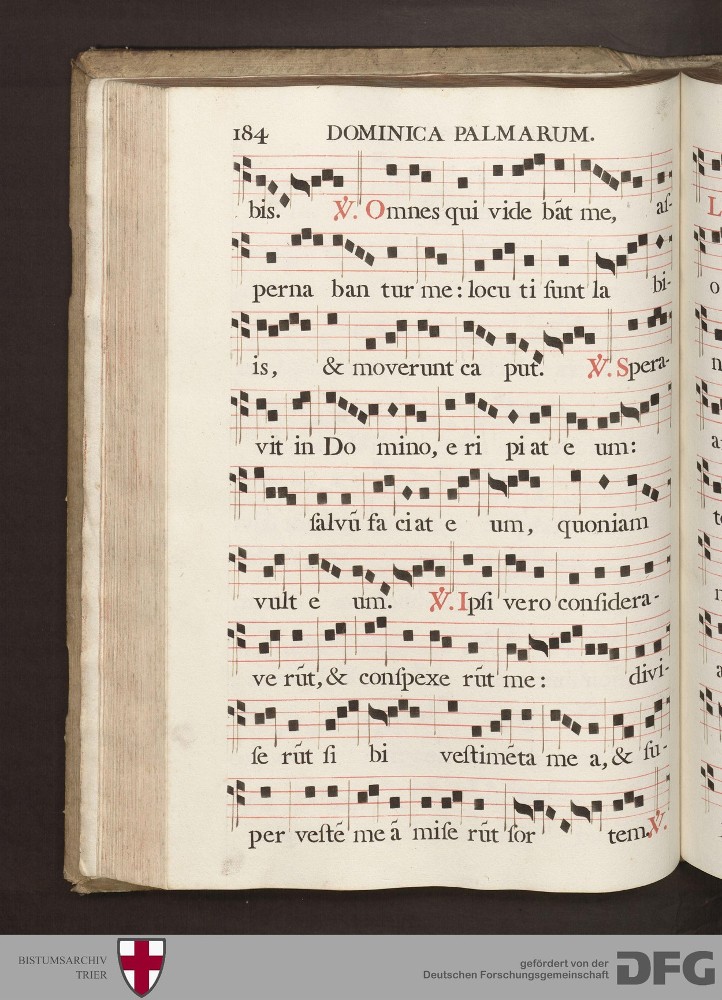 184 DOMINICA PALMARUM.
bis. ℣. Omnes qui vide bãt me, aſ-
perna ban tur me: locu ti ſunt la bi-
is, & moverunt ca put. ℣. Spera-
vit in Do mino, e ri pi at e um:
ſalvũ fa ciat e um, quoniam
vult e um. ℣. Ipſi vero conſidera-
ve rũt, & conſpexe rũt me: divi-
ſe rũt ſi bi veſtimẽta me a, & ſu-
per veſtẽ me ã miſe rũt ſor tem. ℣.
L
o
n
a
t
n
a
BISTUMSARCHIV
TRIER
gefördert von der
Deutschen Forschungsgemeinschaft
DFG